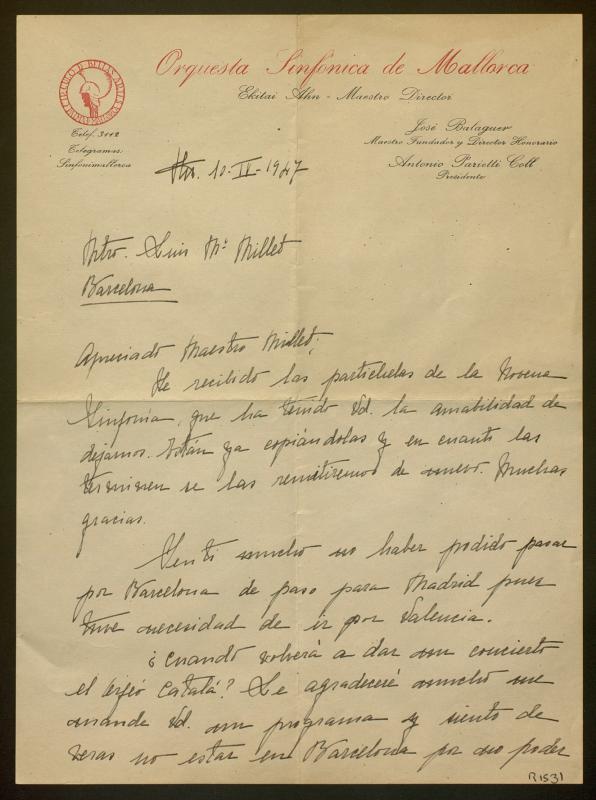 CIRCULO DE BELLAS ARTES
Orquesta Sinfónica de Mallorca
Ekitai Ahn - Maestro Director
Telef. 3112
Telegramas:
Sinfonimallorca
José Balaguer
Maestro Fundador y Director Honorario
Antonio Parietti Coll
Presidente
10-II-1947
Mtro. Luis Mª Millet
Barcelona
Apreciado Maestro Millet:
He recibido las partichelas de la Novena
Sinfonía, que ha tenido Vd. la amabilidad de
dejarnos. Están ya copiándolas y en cuanto las
terminen se las remitiremos de nuevo. Muchas
gracias.
Sentí mucho no haber podido pasar
por Barcelona de paso para Madrid pues
tuve necesidad de ir por Valencia.
¿Cuando volverá a dar un concierto
el Orfeó Catalá? Le agradeceré mucho me
mande Vd. un programa y siento de
veras no estar en Barcelona por no poder
R1531